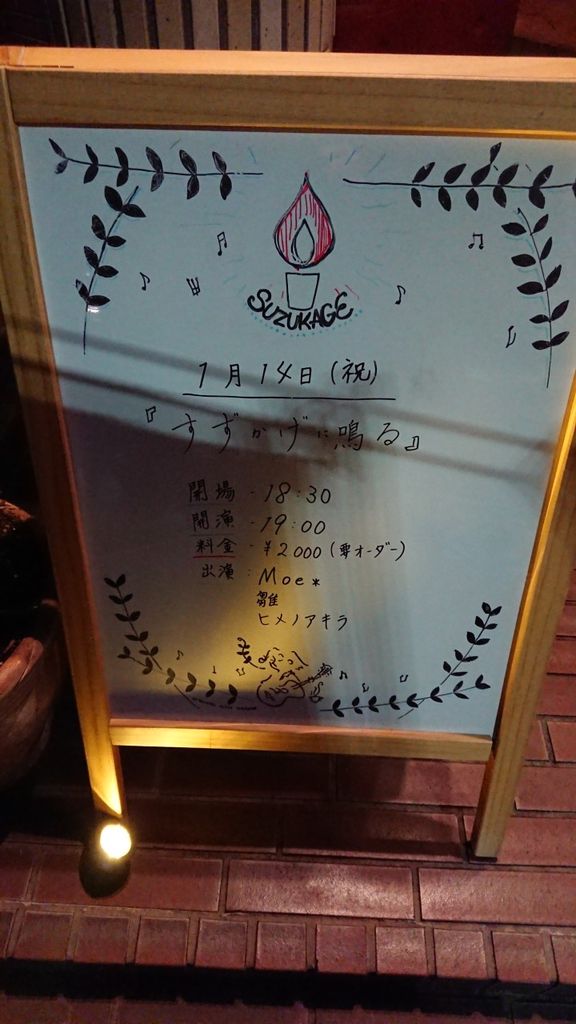 SUZUKAGE
1月14日(祝)
『すずかげに鳴る』
開場 - 18:30
開演 - 19:00
料金 - ¥2000(要オーダー)
出演: Moe*
雛
ヒメノアキラ